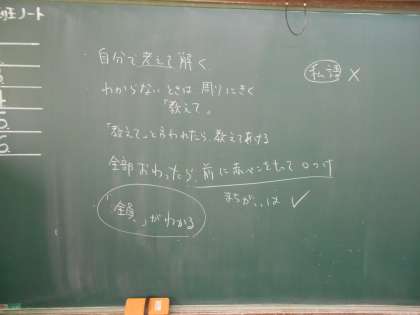 班ノート
・自分で考えて解く
私語 ×
わからないときは 周りにきく
「教えて」
「教えて」と言われたら、教えてあげる
全部おわったら、前に赤ペンをもって○つけ
まちがいは ✓
「全員」がわかる
5.
6.